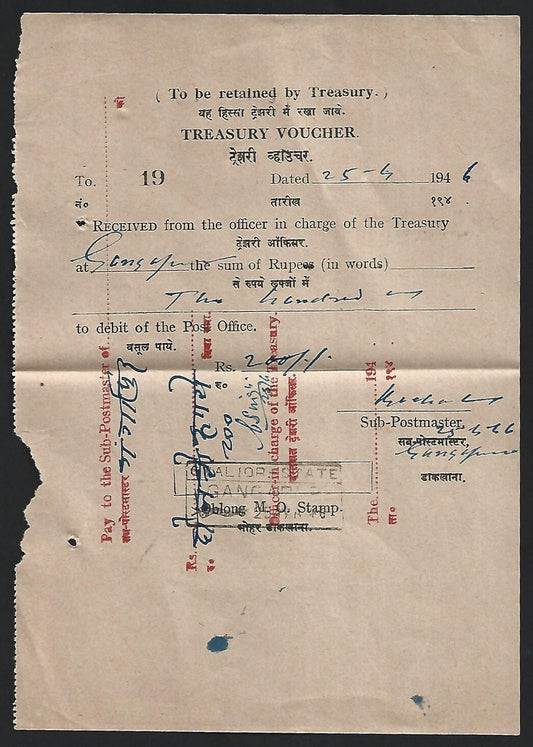 ( To be retained by Treasury. )
यह हिस्सा ट्रेझरी में रखा जावे.
TREASURY VOUCHER.
ट्रेझरी व्हाउचर.
To. 19 Dated 25-4 1946
नं० तारीख १९४ .
RECEIVED from the officer in charge of the Treasury
ट्रेझरी ऑफिसर.
at Gangapur the sum of Rupees (in words)
से रुपये लफ्जों में
Two hundred
to debit of the Post Office.
वसूल पाये.
Rs. 200/-/-
रु०
Sub-Postmaster.
सब-पोस्टमास्टर,
Gangapur
डाकखाना.
GWALIOR STATE
Oblong M. O. Stamp.
मोहर डाकखाना.
Pay to the Sub-Postmaster of
सब-पोस्टमास्टर
को
Rs.
रु०
दिया जाय.
Officer-in-charge of the Treasury.
दस्तखत ट्रेझरी ऑफिसर.
The 194 .
ता० १९४ .